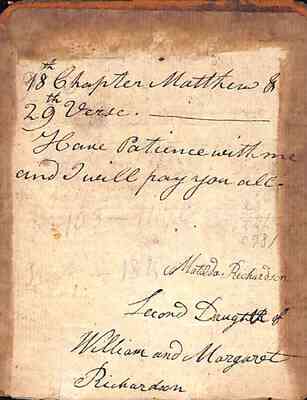 18th Chapter Matthew &
29th Verse.
Have Patience with me
and I will pay you all.
Matilda Richardson
Second Daughtr of
William and Margaret
Richardson